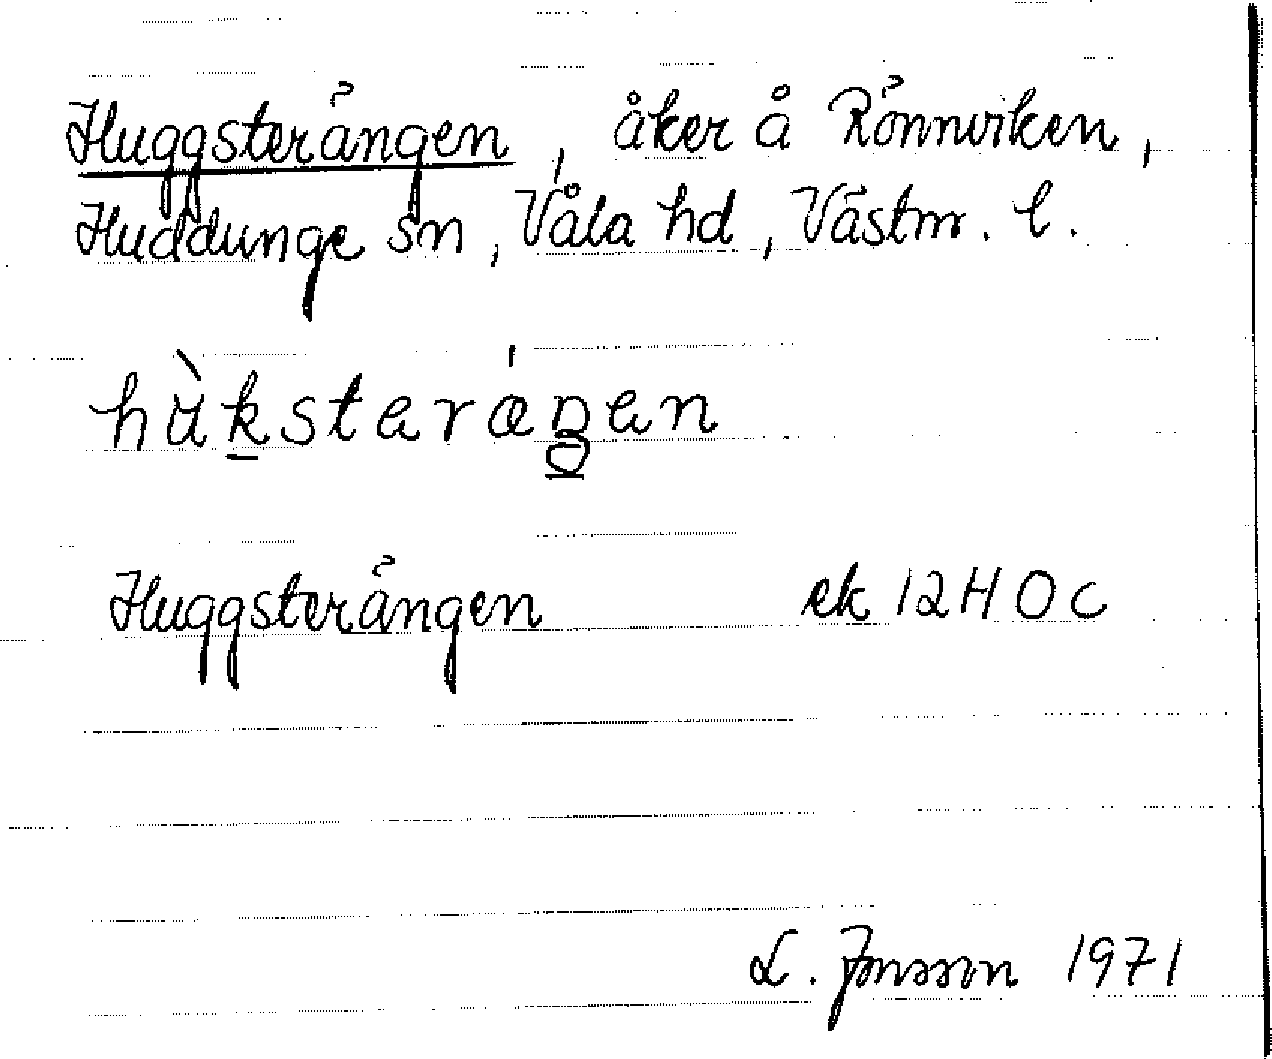 Huggsterängen, åker å Rönnviken,
Huddunge sn, Våla hd, Västm. l.
hùksterǽŋen
Huggsterängen ek 12H0c
L. Jonsson 1971